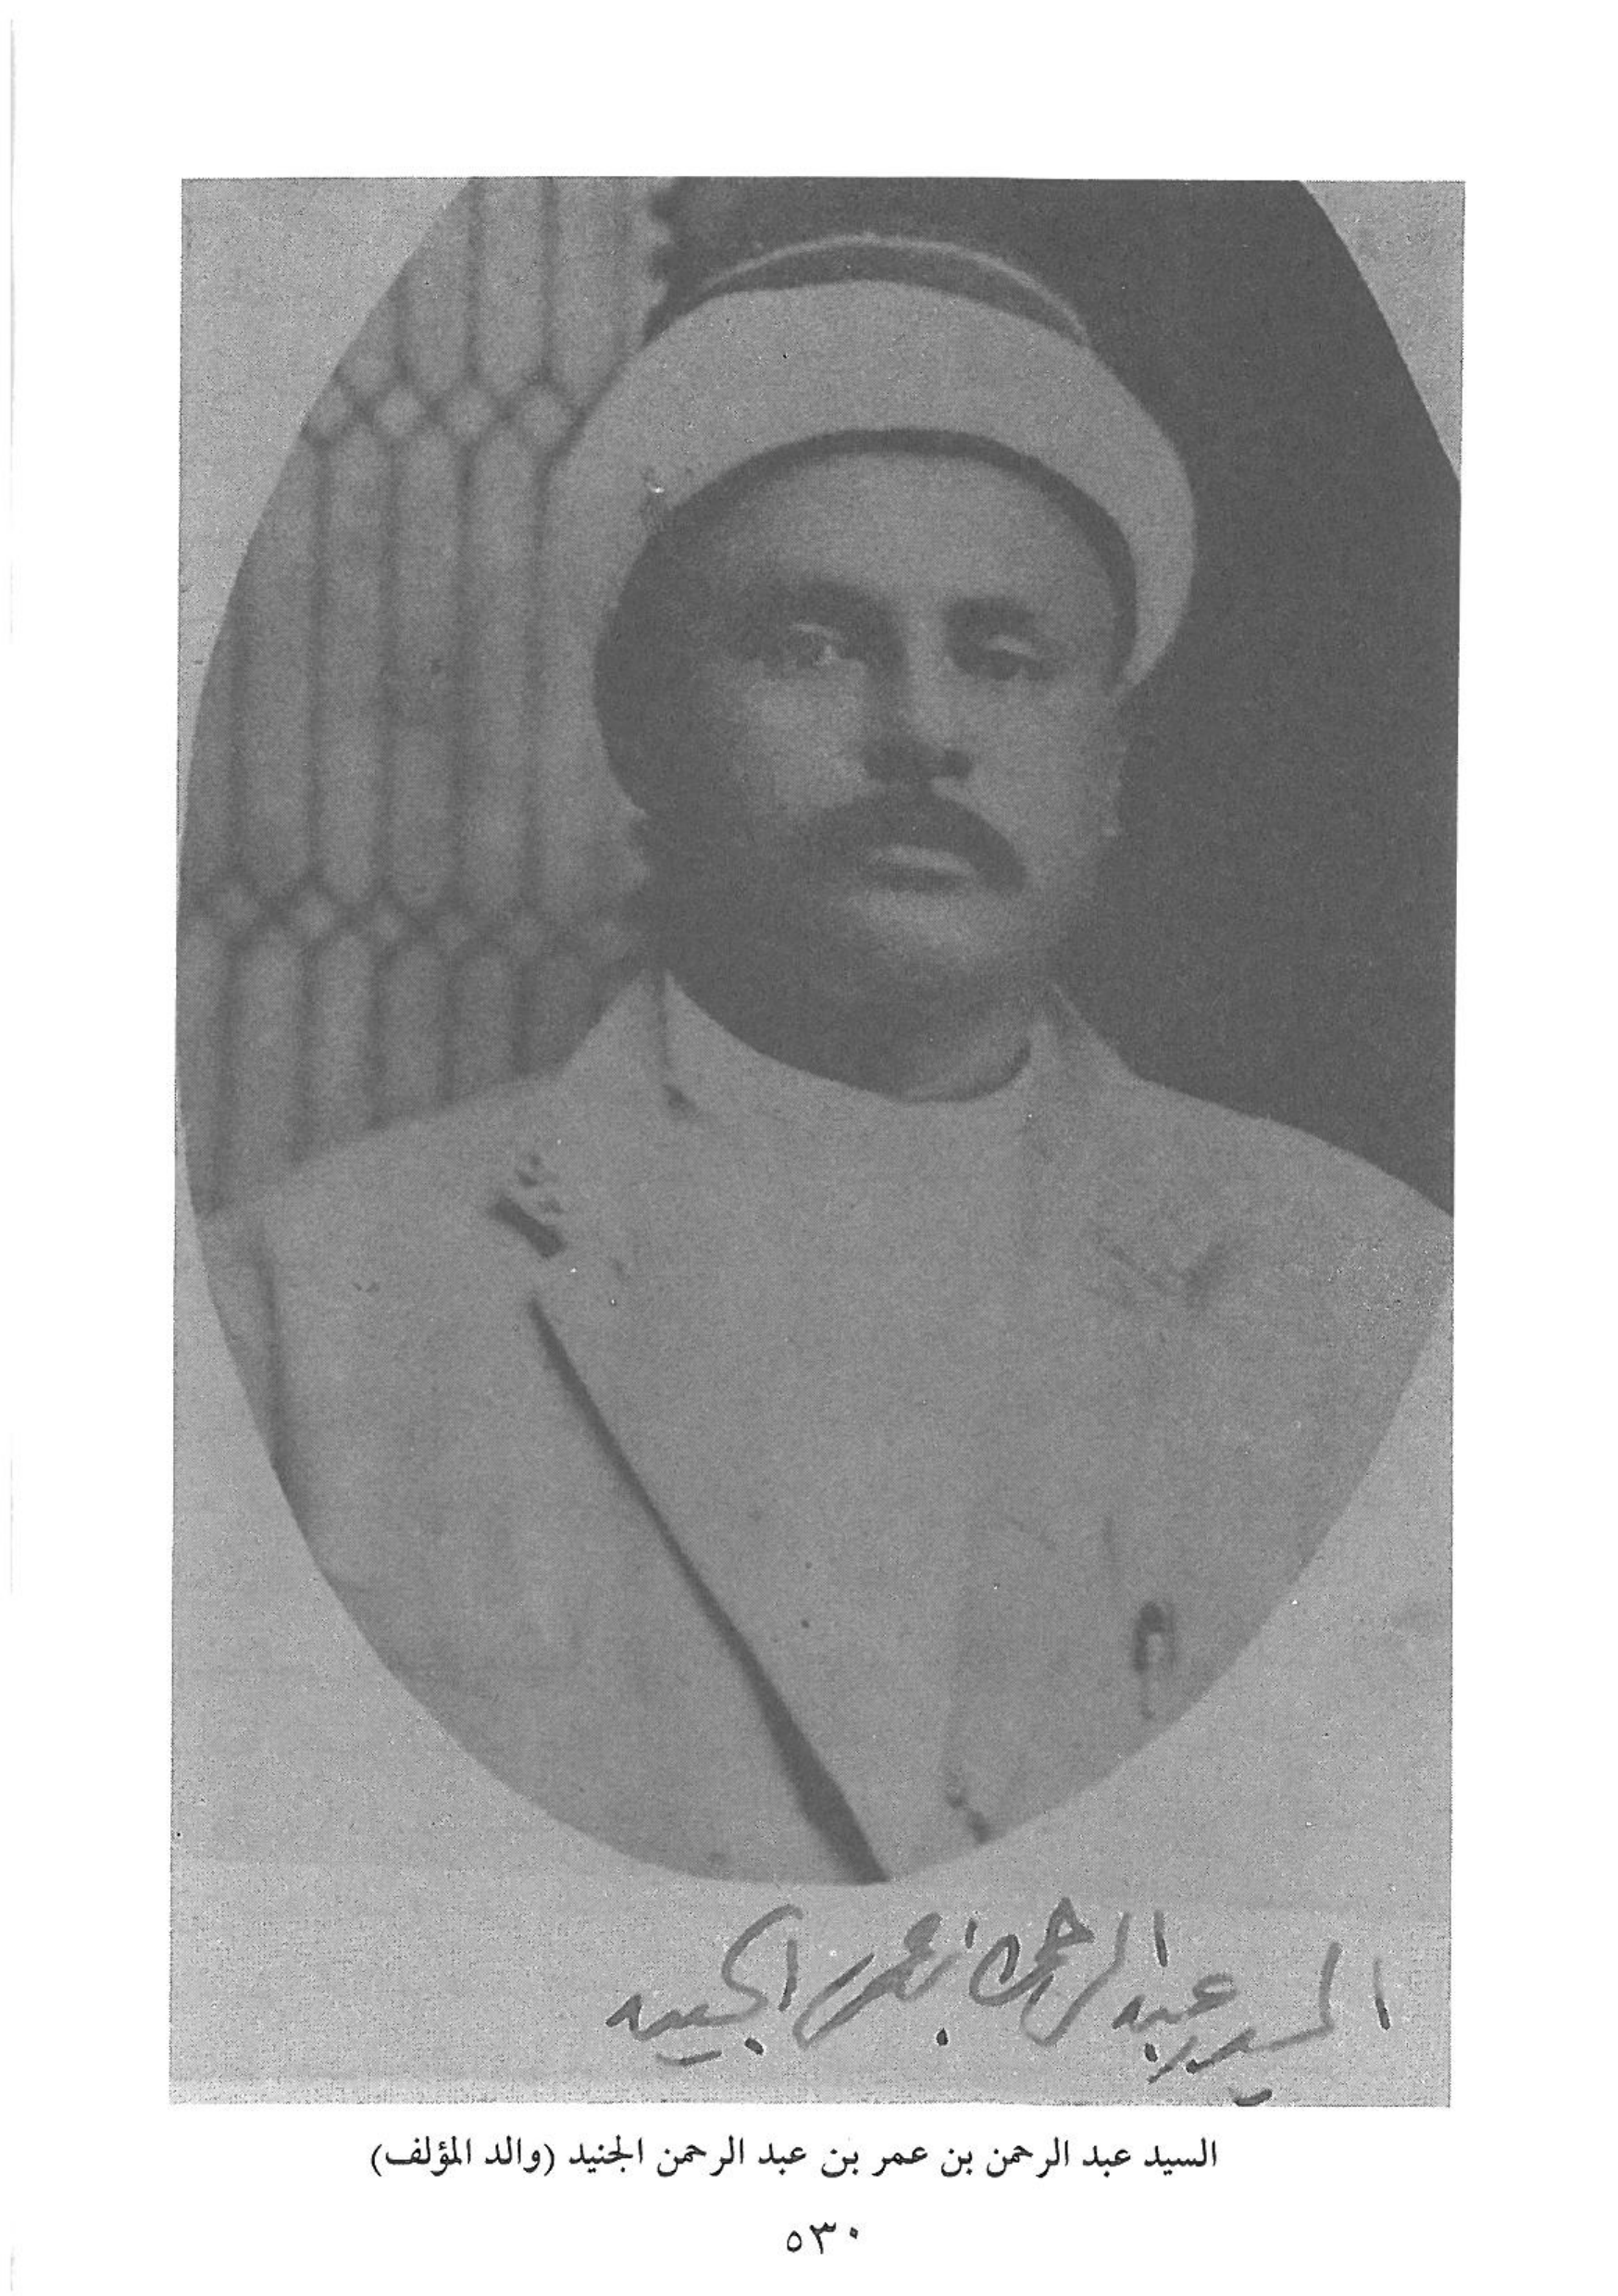 السيد عبد الرحمن بن عمر الجنيد
السيد عبد الرحمن بن عمر بن عبد الرحمن الجنيد (والد المؤلف)
٥٣٠